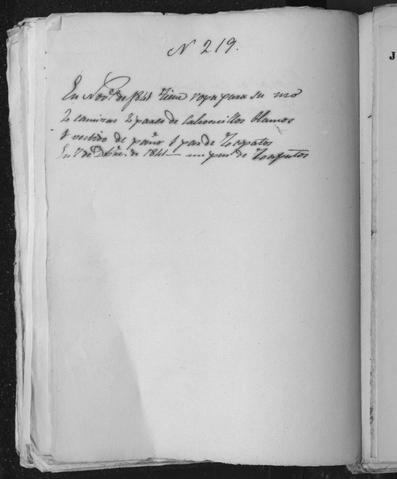 N 219.
En Nov.e de 1841 tiene ropa para su uso
2 camisas 2 pares de calsoncillos blancos
1 vestido de paño 1 par de Zapatos
En 1.o de Dbre. de 1841 — un par de Zapatos
J